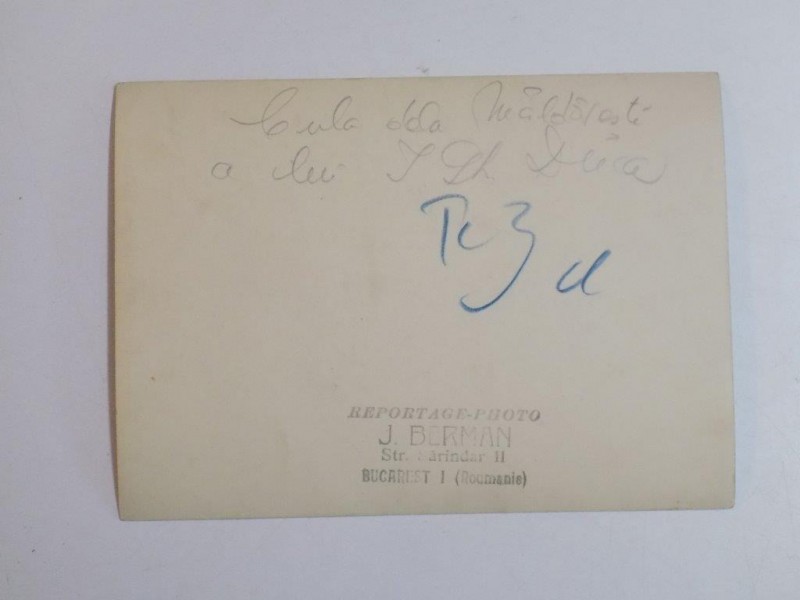 Cula dela Măldărești
a lui I Gh. Duca
REPORTAGE-PHOTO
J. BERMAN
Str. Sărindar 11
BUCAREST 1 (Roumanie)